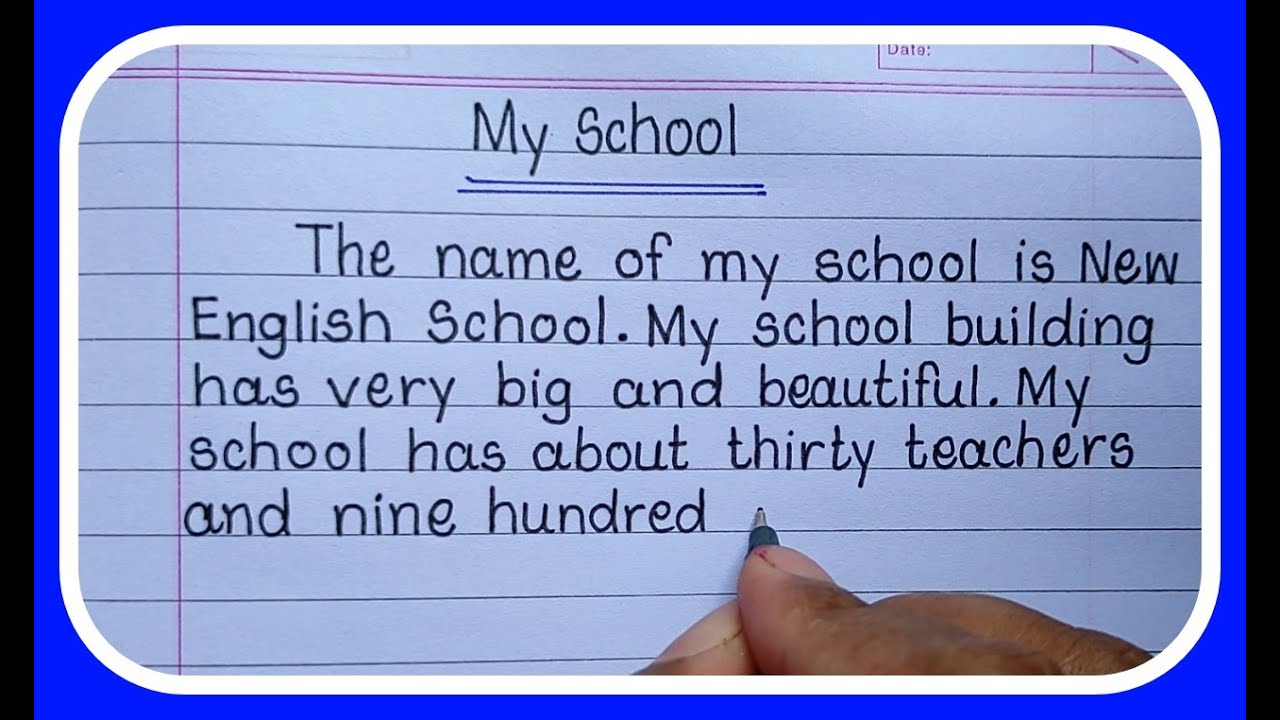 Date:
My School
The name of my school is New
English School. My school building
has very big and beautiful. My
school has about thirty teachers
and nine hundred